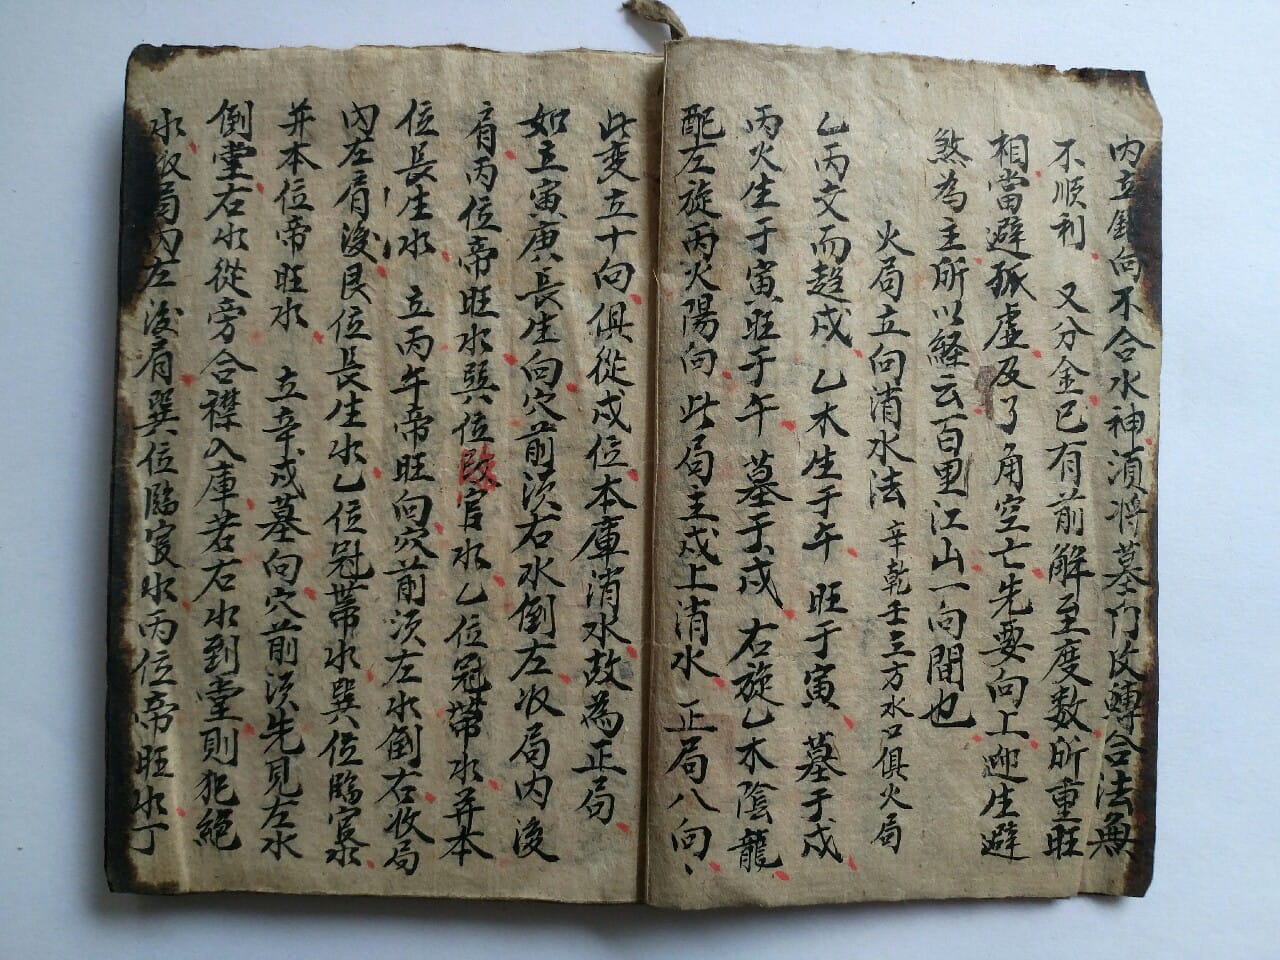 内立向不合水神須将墓门改轉合法無
不順利 又分金已有前解至度数所重旺
相當避孤虚及了角空亡先要向上迎生避
煞為主所以経云百里江山一向間也
火局立向消水法 辛乾壬三方水口俱火局
乙丙交而趋戍 乙木生于午 旺于寅 墓于戍
丙火生于寅旺于午 墓于戍 右旋乙木陰龍
配左旋丙火陽向 此局主戍上消水 正局八向
此变立十向俱從戍位本庫消水故為正局
如立寅庚長生向穴前須右水倒左收局内後
肩丙位帝旺水巽位臨官水乙位冠帶水并本
位長生水 立丙午帝旺向穴前須左水倒右收局
内左肩後艮位長生水乙位冠帶水巽位臨官水
并本位帝旺水 立辛戍墓向穴前須先見左水
倒堂右水從旁合襟入庫若右水到堂則犯絕
水收局内左後肩巽位臨官水丙位帝旺水丁